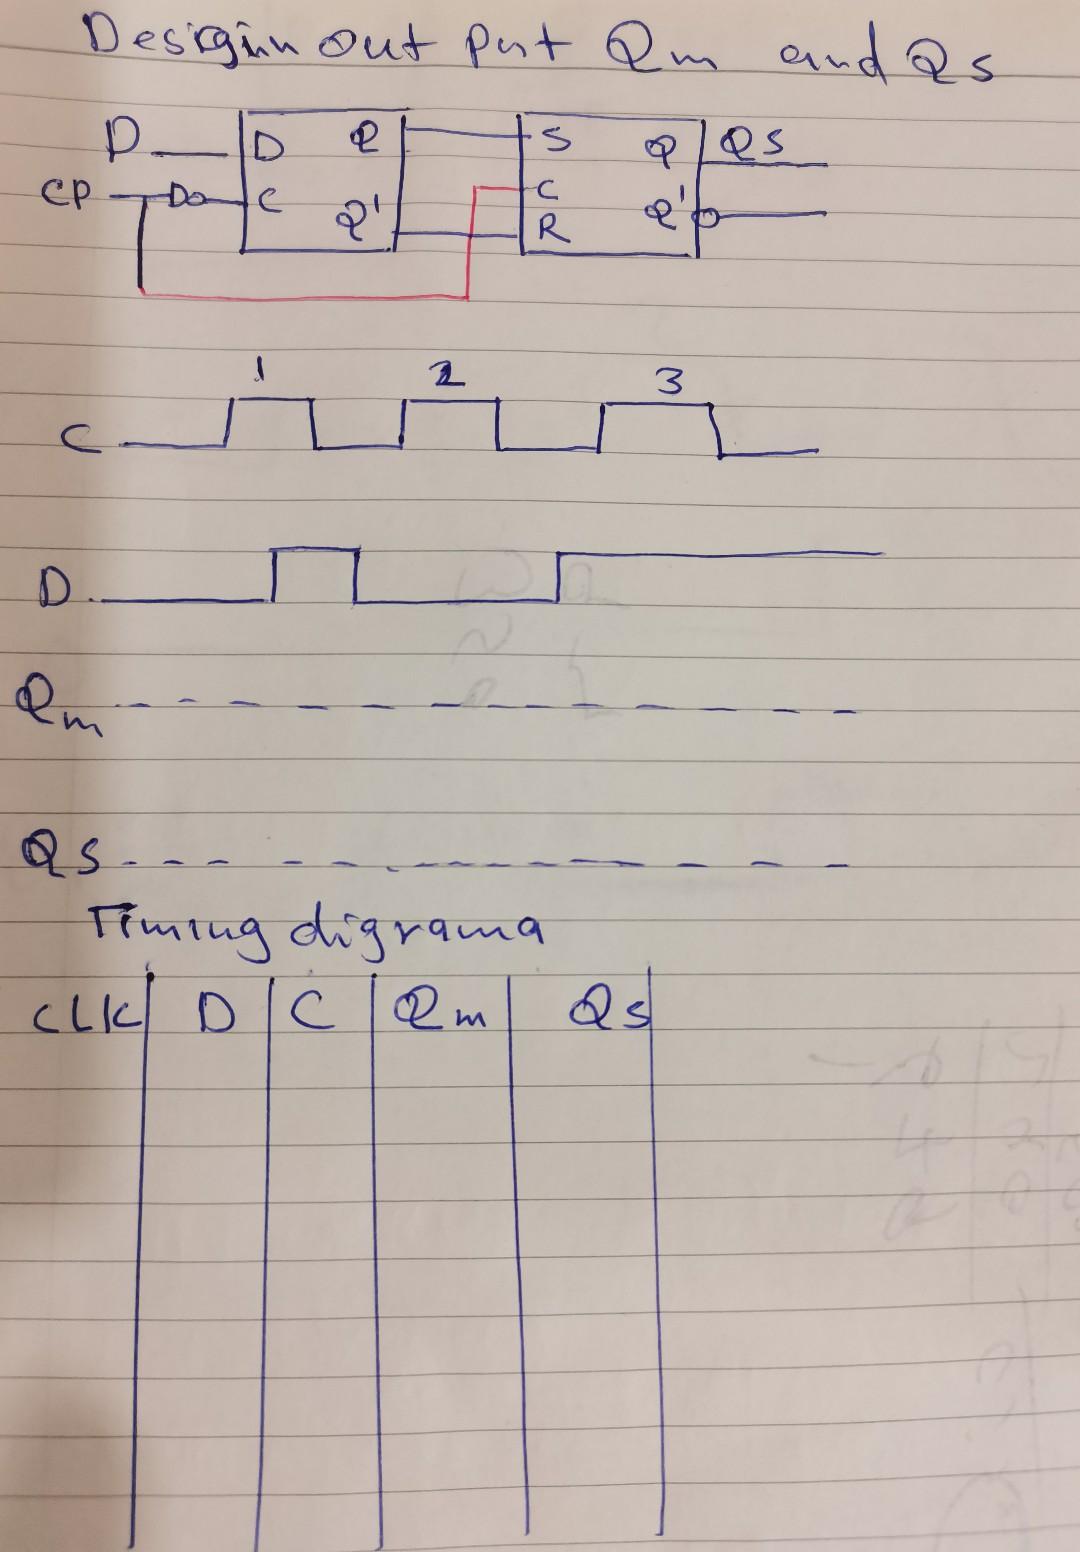 Desigin out put Qm and Qs
D D Q S Q QS
CP C Q' C R Q'
1 2 3
C
D
Qm
Qs
Timing digrama
CLK D C Qm Qs